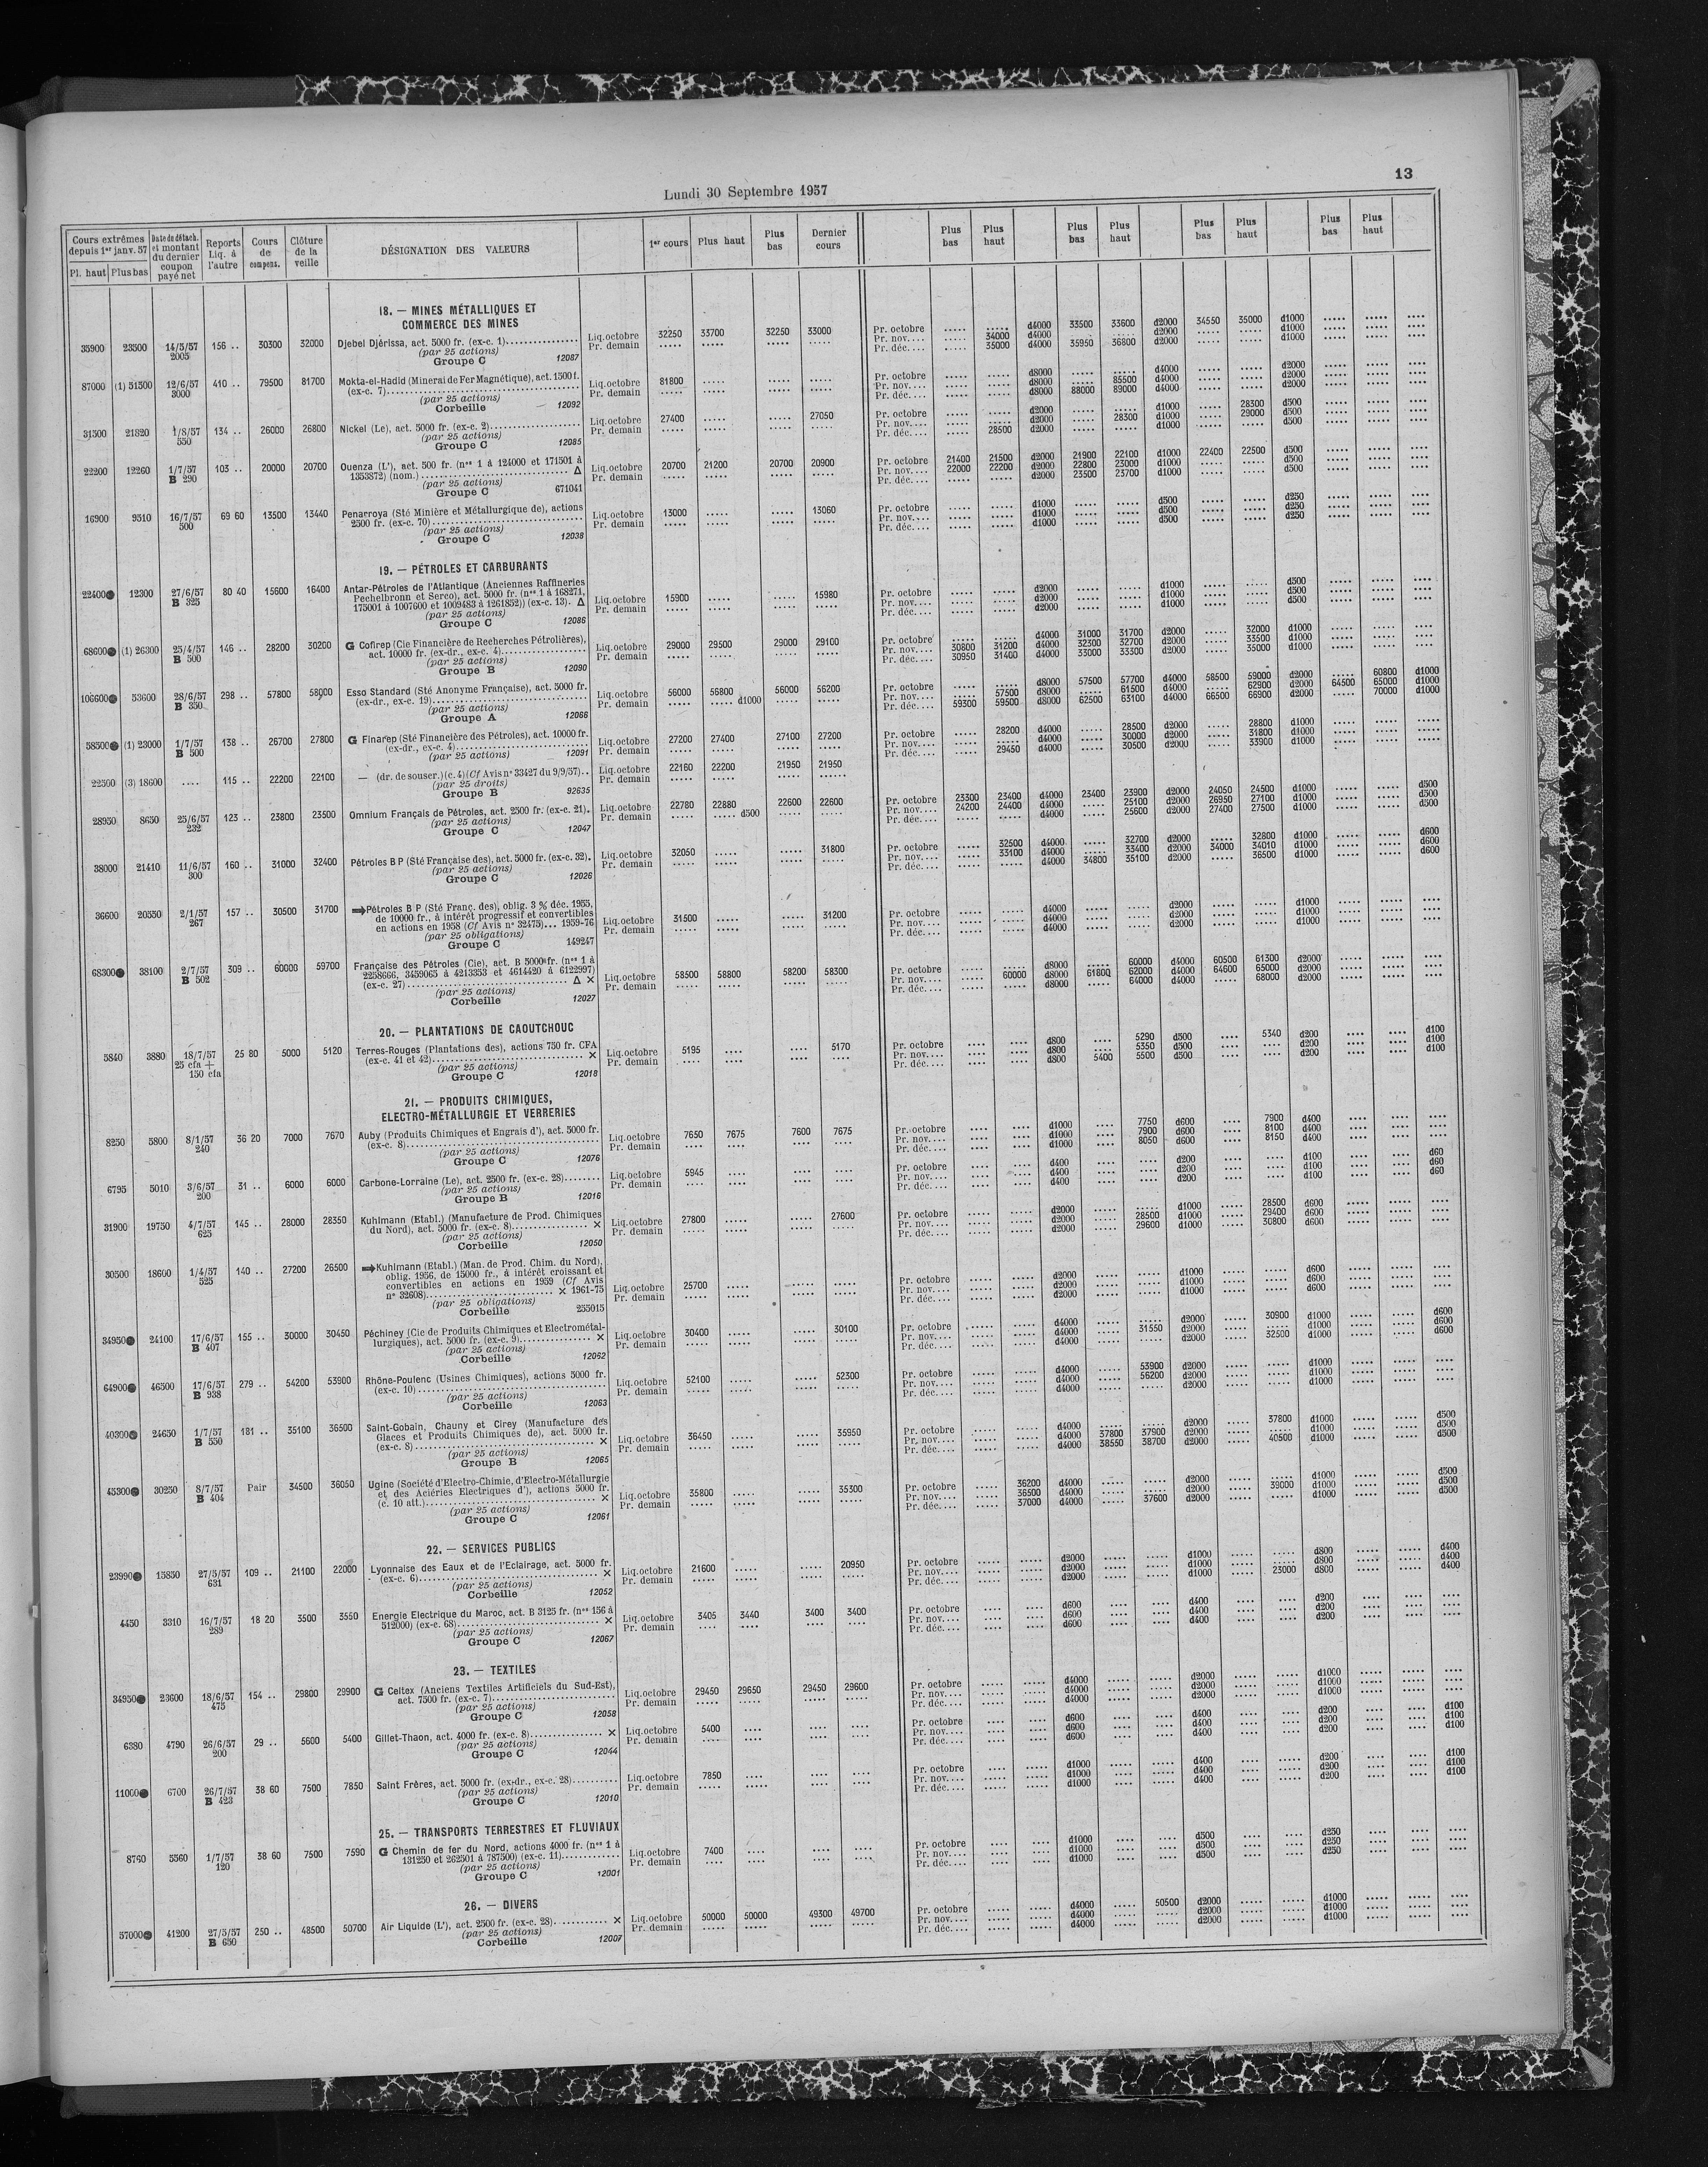 13
Lundi 30 Septembre 1957
Cours extrêmes depuis 1er janv. 57 Pl. haut Plus bas | Date du détach. et montant du dernier coupon payé net | Reports Liq. à l'autre | Cours de compens. | Clôture de la veille | DÉSIGNATION DES VALEURS | 1er cours | Plus haut | Plus bas | Dernier cours | Plus bas | Plus haut | Plus bas | Plus haut | Plus bas | Plus haut | Plus bas | Plus haut
18. — MINES MÉTALLIQUES ET
COMMERCE DES MINES
35900 23500 14/5/57 2005 156 .. 30300 32000 Djebel Djérissa, act. 5000 fr. (ex-c. 1) Liq.octobre 32250 33700 32250 33000 Pr. octobre ..... ..... d4000 33500 33600 d2000 34550 35000 d1000
(par 25 actions) Pr. demain Pr. nov. ..... 34000 d4000 ..... ..... d2000 ..... ..... d1000
Groupe C 12087 Pr. déc. ..... 35000 d4000 35950 36800 d2000 ..... ..... d1000
87000 (1) 51500 12/6/57 3000 410 .. 79500 81700 Mokta-el-Hadid (Minerai de Fer Magnétique), act. 1500 f. Liq.octobre 81800 Pr. octobre ..... ..... d8000 ..... ..... d4000 ..... ..... d2000
(ex-c. 7) Pr. demain Pr. nov. ..... ..... d8000 ..... 85500 d4000 ..... ..... d2000
(par 25 actions) Pr. déc. ..... ..... d8000 88000 89000 d4000 ..... ..... d2000
Corbeille 12092
31500 21820 1/8/57 550 134 .. 26000 26800 Nickel (Le), act. 5000 fr. (ex-c. 2) Liq.octobre 27400 ..... ..... 27050 Pr. octobre ..... ..... d2000 ..... ..... d1000 ..... 28300 d500
(par 25 actions) Pr. demain Pr. nov. ..... ..... d2000 ..... 28300 d1000 ..... 29000 d500
Groupe C 12085 Pr. déc. ..... 28500 d2000 ..... ..... d1000 ..... ..... d500
22200 12260 1/7/57 B 290 103 .. 20000 20700 Ouenza (L'), act. 500 fr. (nos 1 à 124000 et 171501 à Liq.octobre 20700 21200 20700 20900 Pr. octobre 21400 21500 d2000 21900 22100 d1000 22400 22500 d500
1353872) (nom.) Δ Pr. demain Pr. nov. 22000 22200 d2000 22800 23000 d1000 ..... ..... d500
(par 25 actions) Pr. déc. ..... ..... d2000 23500 23700 d1000 ..... ..... d500
Groupe C 671041
16900 9310 16/7/57 500 69 60 13500 13440 Penarroya (Sté Minière et Métallurgique de), actions Liq.octobre 13000 ..... ..... 13060 Pr. octobre ..... ..... d1000 ..... ..... d500 ..... ..... d250
2500 fr. (ex-c. 70) Pr. demain Pr. nov. ..... ..... d1000 ..... ..... d500 ..... ..... d250
(par 25 actions) Pr. déc. ..... ..... d1000 ..... ..... d500 ..... ..... d250
Groupe C 12038
19. — PÉTROLES ET CARBURANTS
22400● 12300 27/6/57 B 325 80 40 15600 16400 Antar-Pétroles de l'Atlantique (Anciennes Raffineries
Pechelbronn et Serco), act. 5000 fr. (nos 1 à 168271, Liq.octobre 15900 ..... ..... 15980 Pr. octobre ..... ..... d2000 ..... ..... d1000 ..... ..... d500
175001 à 1007600 et 1009483 à 1261852)) (ex-c. 13). Δ Pr. demain Pr. nov. ..... ..... d2000 ..... ..... d1000 ..... ..... d500
(par 25 actions) Pr. déc. ..... ..... d2000 ..... ..... d1000 ..... ..... d500
Groupe C 12086
68600● (1) 26300 25/4/57 B 500 146 .. 28200 30200 G Cofirep (Cie Financière de Recherches Pétrolières), Liq.octobre 29000 29500 29000 29100 Pr. octobre ..... ..... d4000 31000 31700 d2000 ..... 32000 d1000
act. 10000 fr. (ex-dr., ex-c. 4) Pr. demain Pr. nov. 30800 31200 d4000 32300 32700 d2000 ..... 33500 d1000
(par 25 actions) Pr. déc. 30950 31400 d4000 33000 33300 d2000 ..... 35000 d1000
Groupe B 12090
106600● 53600 28/6/57 B 350 298 .. 57800 58000 Esso Standard (Sté Anonyme Française), act. 5000 fr. Liq.octobre 56000 56800 56000 56200 Pr. octobre ..... ..... d8000 57500 57700 d4000 58500 59000 d2000 ..... 60800 d1000
(ex-dr., ex-c. 19) Pr. demain ..... ..... d1000 Pr. nov. ..... 57500 d8000 ..... 61500 d4000 ..... 62900 d2000 64500 65000 d1000
(par 25 actions) Pr. déc. 59300 59500 d8000 62500 63100 d4000 66500 66900 d2000 ..... 70000 d1000
Groupe A 12066
58500● (1) 23000 1/7/57 B 500 138 .. 26700 27800 G Finarep (Sté Financière des Pétroles), act. 10000 fr. Liq.octobre 27200 27400 27100 27200 Pr. octobre ..... 28200 d4000 ..... 28500 d2000 ..... 28800 d1000
(ex-dr., ex-c. 4) Pr. demain Pr. nov. ..... ..... d4000 ..... 30000 d2000 ..... 31800 d1000
(par 25 actions) 12091 Pr. déc. ..... 29450 d4000 ..... 30500 d2000 ..... 33900 d1000
22500 (3) 18600 .... 115 .. 22200 22100 — (dr. de souscr.) (c. 4) (Cf Avis n° 33427 du 9/9/57) Liq.octobre 22160 22200 21950 21950
(par 25 droits) Pr. demain
Groupe B 92635
28950 8650 25/6/57 232 123 .. 23800 23500 Omnium Français de Pétroles, act. 2500 fr. (ex-c. 21). Liq.octobre 22780 22880 22600 22600 Pr. octobre 23300 23400 d4000 23400 23900 d2000 24050 24500 d1000 ..... ..... d500
(par 25 actions) Pr. demain ..... ..... d500 Pr. nov. 24200 24400 d4000 ..... 25100 d2000 26950 27100 d1000 ..... ..... d500
Groupe C 12047 Pr. déc. ..... ..... d4000 ..... 25600 d2000 27400 27500 d1000 ..... ..... d500
38000 21410 11/6/57 300 160 .. 31000 32400 Pétroles B P (Sté Française des), act. 5000 fr. (ex-c. 32). Liq.octobre 32050 ..... ..... 31800 Pr. octobre ..... 32500 d4000 ..... 32700 d2000 ..... 32800 d1000 ..... ..... d600
(par 25 actions) Pr. demain Pr. nov. ..... 33100 d4000 ..... 33400 d2000 34000 34010 d1000 ..... ..... d600
Groupe C 12026 Pr. déc. ..... ..... d4000 34800 35100 d2000 ..... 36500 d1000 ..... ..... d600
36600 20550 2/1/57 267 157 .. 30500 31700 ➡Pétroles B P (Sté Franç. des), oblig. 3 % déc. 1955,
de 10000 fr., à intérêt progressif et convertibles Liq.octobre 31500 ..... ..... 31200 Pr. octobre ..... ..... d4000 ..... ..... d2000 ..... ..... d1000
en actions en 1958 (Cf Avis n° 32475)... 1959-76 Pr. demain Pr. nov. ..... ..... d4000 ..... ..... d2000 ..... ..... d1000
(par 25 obligations) Pr. déc. ..... ..... d4000 ..... ..... d2000 ..... ..... d1000
Groupe C 149247
68300● 38100 2/7/57 B 502 309 .. 60000 59700 Française des Pétroles (Cie), act. B 5000 fr. (nos 1 à
2258666, 3459065 à 4213353 et 4614420 à 6122997) Liq.octobre 58500 58800 58200 58300 Pr. octobre ..... ..... d8000 ..... 60000 d4000 60500 61300 d2000
(ex-c. 27) Δ × Pr. demain Pr. nov. ..... 60000 d8000 61800 62000 d4000 64600 65000 d2000
(par 25 actions) Pr. déc. ..... ..... d8000 ..... 64000 d4000 ..... 68000 d2000
Corbeille 12027
20. — PLANTATIONS DE CAOUTCHOUC
5840 3880 18/7/57 25 cfa + 150 cfa 25 80 5000 5120 Terres-Rouges (Plantations des), actions 750 fr. CFA Liq.octobre 5195 .... .... 5170 Pr. octobre .... .... d800 .... 5290 d500 .... 5340 d200 .... .... d100
(ex-c. 41 et 42) × Pr. demain Pr. nov. .... .... d800 .... 5350 d500 .... .... d200 .... .... d100
(par 25 actions) Pr. déc. .... .... d800 5400 5500 d500 .... .... d200 .... .... d100
Groupe C 12018
21. — PRODUITS CHIMIQUES,
ELECTRO-MÉTALLURGIE ET VERRERIES
8250 5800 8/1/57 240 36 20 7000 7670 Auby (Produits Chimiques et Engrais d'), act. 5000 fr. Liq.octobre 7650 7675 7600 7675 Pr. octobre .... .... d1000 .... 7750 d600 .... 7900 d400
(ex-c. 8) Pr. demain Pr. nov. .... .... d1000 .... 7900 d600 .... 8100 d400
(par 25 actions) Pr. déc. .... .... d1000 .... 8050 d600 .... 8150 d400
Groupe C 12076
6795 5010 3/6/57 200 31 .. 6000 6000 Carbone-Lorraine (Le), act. 2500 fr. (ex-c. 28) Liq.octobre 5945 Pr. octobre .... .... d400 .... .... d200 .... .... d100 .... .... d60
(par 25 actions) Pr. demain Pr. nov. .... .... d400 .... .... d200 .... .... d100 .... .... d60
Groupe B 12016 Pr. déc. .... .... d400 .... .... d200 .... .... d100 .... .... d60
31900 19750 4/7/57 625 145 .. 28000 28350 Kuhlmann (Etabl.) (Manufacture de Prod. Chimiques Liq.octobre 27800 ..... ..... 27600 Pr. octobre ..... ..... d2000 ..... ..... d1000 ..... 28500 d600
du Nord), act. 5000 fr. (ex-c. 8) × Pr. demain Pr. nov. ..... ..... d2000 ..... 28500 d1000 ..... 29400 d600
(par 25 actions) Pr. déc. ..... ..... d2000 ..... 29600 d1000 ..... 30800 d600
Corbeille 12050
30500 18600 1/4/57 525 140 .. 27200 26500 ➡Kuhlmann (Etabl.) (Man. de Prod. Chim. du Nord),
oblig. 1956, de 15000 fr., à intérêt croissant et
convertibles en actions en 1959 (Cf Avis Liq.octobre 25700 Pr. octobre ..... ..... d2000 ..... ..... d1000 ..... ..... d600
n° 32608) × 1961-75 Pr. demain Pr. nov. ..... ..... d2000 ..... ..... d1000 ..... ..... d600
(par 25 obligations) Pr. déc. ..... ..... d2000 ..... ..... d1000 ..... ..... d600
Corbeille 255015
34950● 24100 17/6/57 B 407 155 .. 30000 30450 Péchiney (Cie de Produits Chimiques et Electrométal- Liq.octobre 30400 ..... ..... 30100 Pr. octobre ..... ..... d4000 ..... ..... d2000 ..... 30900 d1000 ..... ..... d600
lurgiques), act. 5000 fr. (ex-c. 9) × Pr. demain Pr. nov. ..... ..... d4000 ..... 31550 d2000 ..... ..... d1000 ..... ..... d600
(par 25 actions) Pr. déc. ..... ..... d4000 ..... ..... d2000 ..... 32500 d1000 ..... ..... d600
Corbeille 12062
64900● 46500 17/6/57 B 938 279 .. 54200 53900 Rhône-Poulenc (Usines Chimiques), actions 5000 fr. Liq.octobre 52100 ..... ..... 52300 Pr. octobre ..... ..... d4000 ..... 53900 d2000 ..... ..... d1000
(ex-c. 10) Pr. demain Pr. nov. ..... ..... d4000 ..... 56200 d2000 ..... ..... d1000
(par 25 actions) Pr. déc. ..... ..... d4000 ..... ..... d2000 ..... ..... d1000
Corbeille 12063
40300● 24650 1/7/57 B 550 181 .. 35100 36500 Saint-Gobain, Chauny et Cirey (Manufacture des
Glaces et Produits Chimiques de), act. 5000 fr. Liq.octobre 36450 ..... ..... 35950 Pr. octobre ..... ..... d4000 ..... ..... d2000 ..... 37800 d1000 ..... ..... d500
(ex-c. 8) × Pr. demain Pr. nov. ..... ..... d4000 37800 37900 d2000 ..... ..... d1000 ..... ..... d500
(par 25 actions) Pr. déc. ..... ..... d4000 38550 38700 d2000 ..... 40500 d1000 ..... ..... d500
Groupe B 12065
45300● 30250 8/7/57 B 404 Pair 34500 36050 Ugine (Société d'Electro-Chimie, d'Electro-Métallurgie
et des Aciéries Electriques d'), actions 5000 fr. Liq.octobre 35800 ..... ..... 35300 Pr. octobre ..... 36200 d4000 ..... ..... d2000 ..... ..... d1000 ..... ..... d500
(c. 10 att.) × Pr. demain Pr. nov. ..... 36500 d4000 ..... ..... d2000 ..... 39000 d1000 ..... ..... d500
(par 25 actions) Pr. déc. ..... 37000 d4000 ..... 37600 d2000 ..... ..... d1000 ..... ..... d500
Groupe C 12061
22. — SERVICES PUBLICS
23990● 15850 27/5/57 631 109 .. 21100 22000 Lyonnaise des Eaux et de l'Eclairage, act. 5000 fr. Liq.octobre 21600 ..... ..... 20950 Pr. octobre ..... ..... d2000 ..... ..... d1000 ..... ..... d800 ..... ..... d400
(ex-c. 6) × Pr. demain Pr. nov. ..... ..... d2000 ..... ..... d1000 ..... ..... d800 ..... ..... d400
(par 25 actions) Pr. déc. ..... ..... d2000 ..... ..... d1000 ..... 23000 d800 ..... ..... d400
Corbeille 12052
4450 3310 16/7/57 289 18 20 3500 3550 Energie Electrique du Maroc, act. B 3125 fr. (nos 156 à Liq.octobre 3405 3440 3400 3400 Pr. octobre .... .... d600 .... .... d400 .... .... d200
512000) (ex-c. 68) × Pr. demain Pr. nov. .... .... d600 .... .... d400 .... .... d200
(par 25 actions) Pr. déc. .... .... d600 .... .... d400 .... .... d200
Groupe C 12067
23. — TEXTILES
34950● 23600 18/6/57 475 154 .. 29800 29900 G Celtex (Anciens Textiles Artificiels du Sud-Est), Liq.octobre 29450 29650 29450 29600 Pr. octobre ..... ..... d4000 ..... ..... d2000 ..... ..... d1000
act. 7500 fr. (ex-c. 7) Pr. demain Pr. nov. ..... ..... d4000 ..... ..... d2000 ..... ..... d1000
(par 25 actions) Pr. déc. ..... ..... d4000 ..... ..... d2000 ..... ..... d1000
Groupe C 12058
6380 4790 26/6/57 200 29 .. 5600 5400 Gillet-Thaon, act. 4000 fr. (ex-c. 8) × Liq.octobre 5400 Pr. octobre .... .... d600 .... .... d400 .... .... d200 .... .... d100
(par 25 actions) Pr. demain Pr. nov. .... .... d600 .... .... d400 .... .... d200 .... .... d100
Groupe C 12044 Pr. déc. .... .... d600 .... .... d400 .... .... d200 .... .... d100
11000● 6700 26/7/57 B 423 38 60 7500 7850 Saint Frères, act. 5000 fr. (ex-dr., ex-c. 28) Liq.octobre 7850 Pr. octobre .... .... d1000 .... .... d400 .... .... d200 .... .... d100
(par 25 actions) Pr. demain Pr. nov. .... .... d1000 .... .... d400 .... .... d200 .... .... d100
Groupe C 12010 Pr. déc. .... .... d1000 .... .... d400 .... .... d200 .... .... d100
25. — TRANSPORTS TERRESTRES ET FLUVIAUX
8760 5560 1/7/57 120 38 60 7500 7590 G Chemin de fer du Nord, actions 4000 fr. (nos 1 à Liq.octobre 7400 Pr. octobre .... .... d1000 .... .... d500 .... .... d250
131250 et 262501 à 787500) (ex-c. 11) Pr. demain Pr. nov. .... .... d1000 .... .... d500 .... .... d250
(par 25 actions) Pr. déc. .... .... d1000 .... .... d500 .... .... d250
Groupe C 12001
26. — DIVERS
57000● 41200 27/5/57 B 650 250 .. 48500 50700 Air Liquide (L'), act. 2500 fr. (ex-c. 28) × Liq.octobre 50000 50000 49300 49700 Pr. octobre ..... ..... d4000 ..... 50500 d2000 ..... ..... d1000
(par 25 actions) Pr. demain Pr. nov. ..... ..... d4000 ..... ..... d2000 ..... ..... d1000
Corbeille 12007 Pr. déc. ..... ..... d4000 ..... ..... d2000 ..... ..... d1000